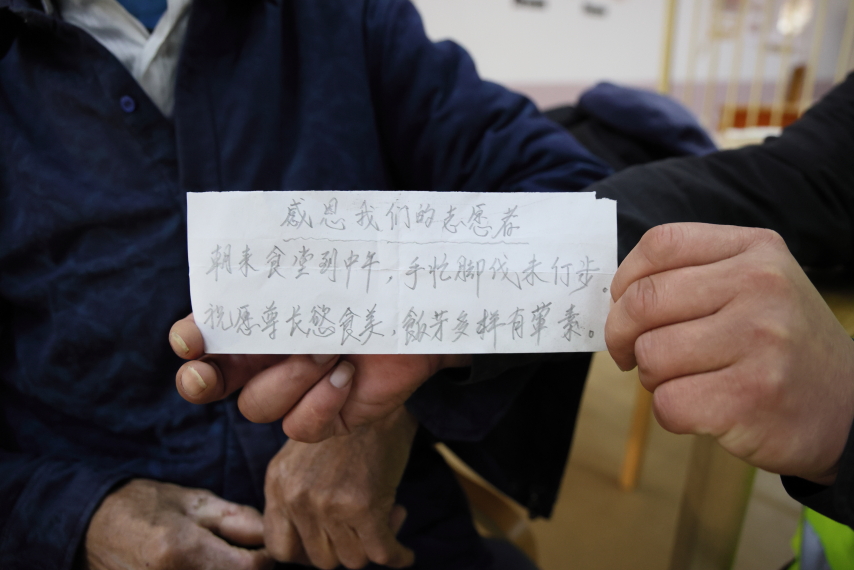 感恩我们的志愿者
朝来食堂到中午，手忙脚伐未停步。
祝愿尊长慾食美，飯芽多样有荤素。